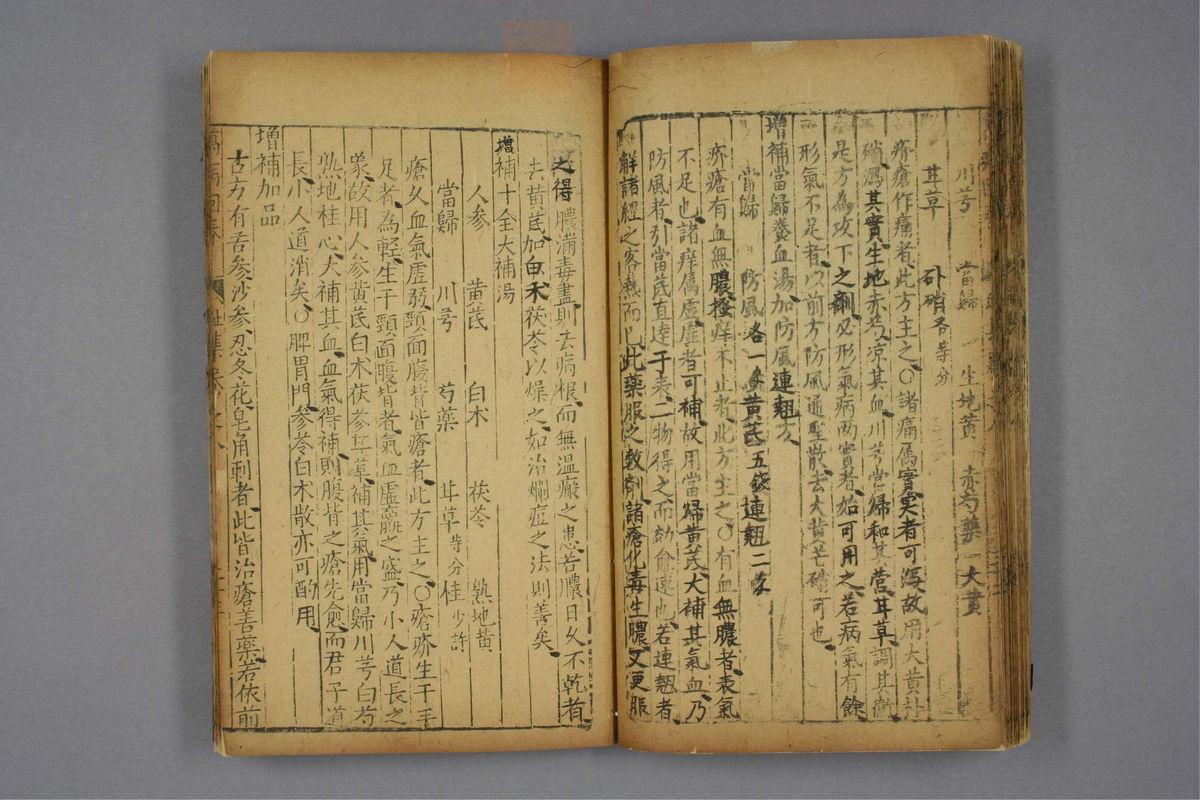 川芎 當歸 生地黃 赤芍藥 大黃
甘草 朴硝各等分
疥瘡作痛者此方主之○諸痛屬實實者可瀉故用大黃朴
硝瀉其實生地赤芍涼其血川芎當歸和其營甘草調其衛
是方為攻下之劑必形氣病氣兩實者始可用之若病氣有餘
形氣不足者以前方防風通聖散去大黃芒硝可也
增補當歸養血湯加防風連翹方
當歸 防風各一 黃芪五錢連翹二
疥瘡有血無膿搔痒不止者此方主之○有血無膿者表氣
不足也諸痒屬虛虛者可補故用當歸黃芪大補其氣血乃
防風者引當芪直達于表二物得之而効愈速也若連翹者
解諸經之客熱而已此藥服之數劑諸瘡化毒生膿又更服
之得膿滿毒盡則去病根而無溫瘢之患若膿日久不乾者
去黃芪加白朮茯苓以燥之如治爛痘之法則善矣
增補十全大補湯
人參 黃芪 白朮 茯苓 熟地黃
當歸 川芎 芍藥 甘草等分桂少許
瘡久血氣虛發頸面腸背皆瘡者此方主之○瘡疥生于手
足者為輕生于頸面腹背者氣血虛羸之盛乃小人道長之
象故用人參黃芪白朮茯苓甘草補其氣用當歸川芎白芍
熟地桂心大補其血血氣得補則腹背之瘡先愈而君子道
長小人道消矣○脾胃門參苓白朮散亦可酌用
增補加品
古方有苦參沙參忍冬花皂角刺者此皆治瘡善藥若依前